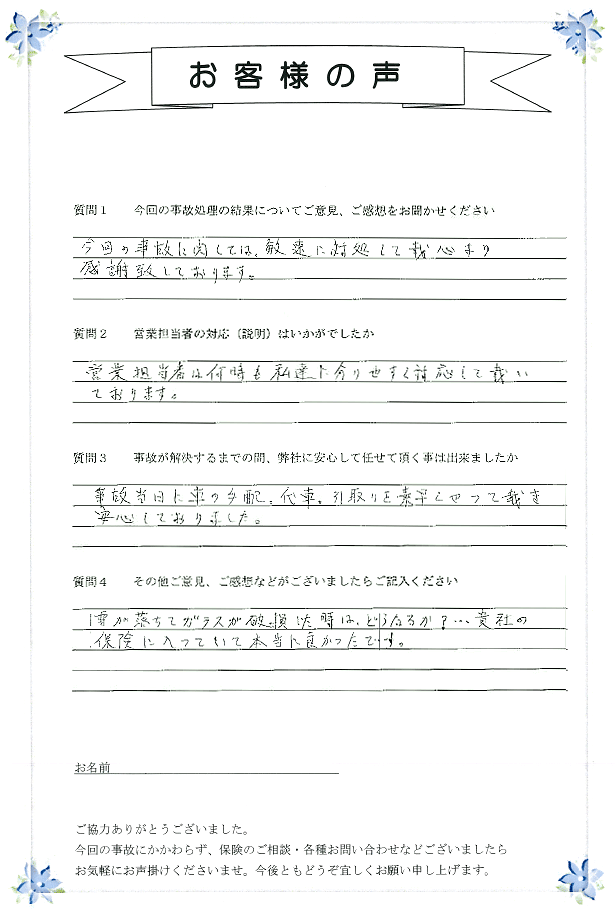 お客様の声
質問1 今回の事故処理の結果についてご意見、ご感想をお聞かせください
今回の事故に関しては、敏速に対処して戴き心より
感謝致しております。
質問2 営業担当者の対応（説明）はいかがでしたか
営業担当者は何時も私達に分りやすく対応して戴い
ております。
質問3 事故が解決するまでの間、弊社に安心して任せて頂く事は出来ましたか
事故当日に車の手配、代車、引取りを素早くやって戴き
安心しておりました。
質問4 その他ご意見、ご感想などがございましたらご記入ください
雪が落ちてガラスが破損した時は、どうなるか？…貴社の
保険に入っていて本当に良かったです。
お名前
ご協力ありがとうございました。
今回の事故にかかわらず、保険のご相談・各種お問い合わせなどございましたら
お気軽にお声掛けくださいませ。今後ともどうぞ宜しくお願い申し上げます。